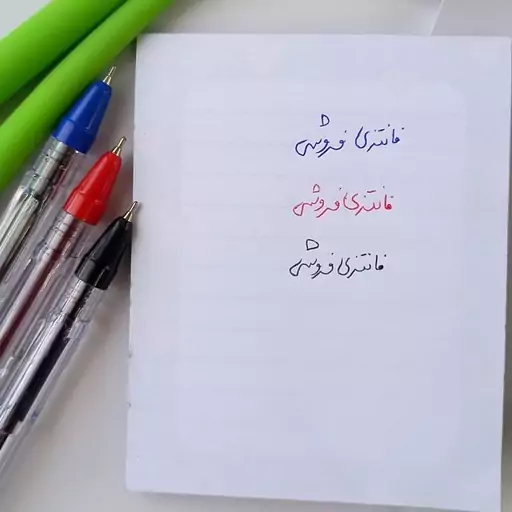 فانتزی فروشی
فانتزی فروشی
فانتزی فروشی